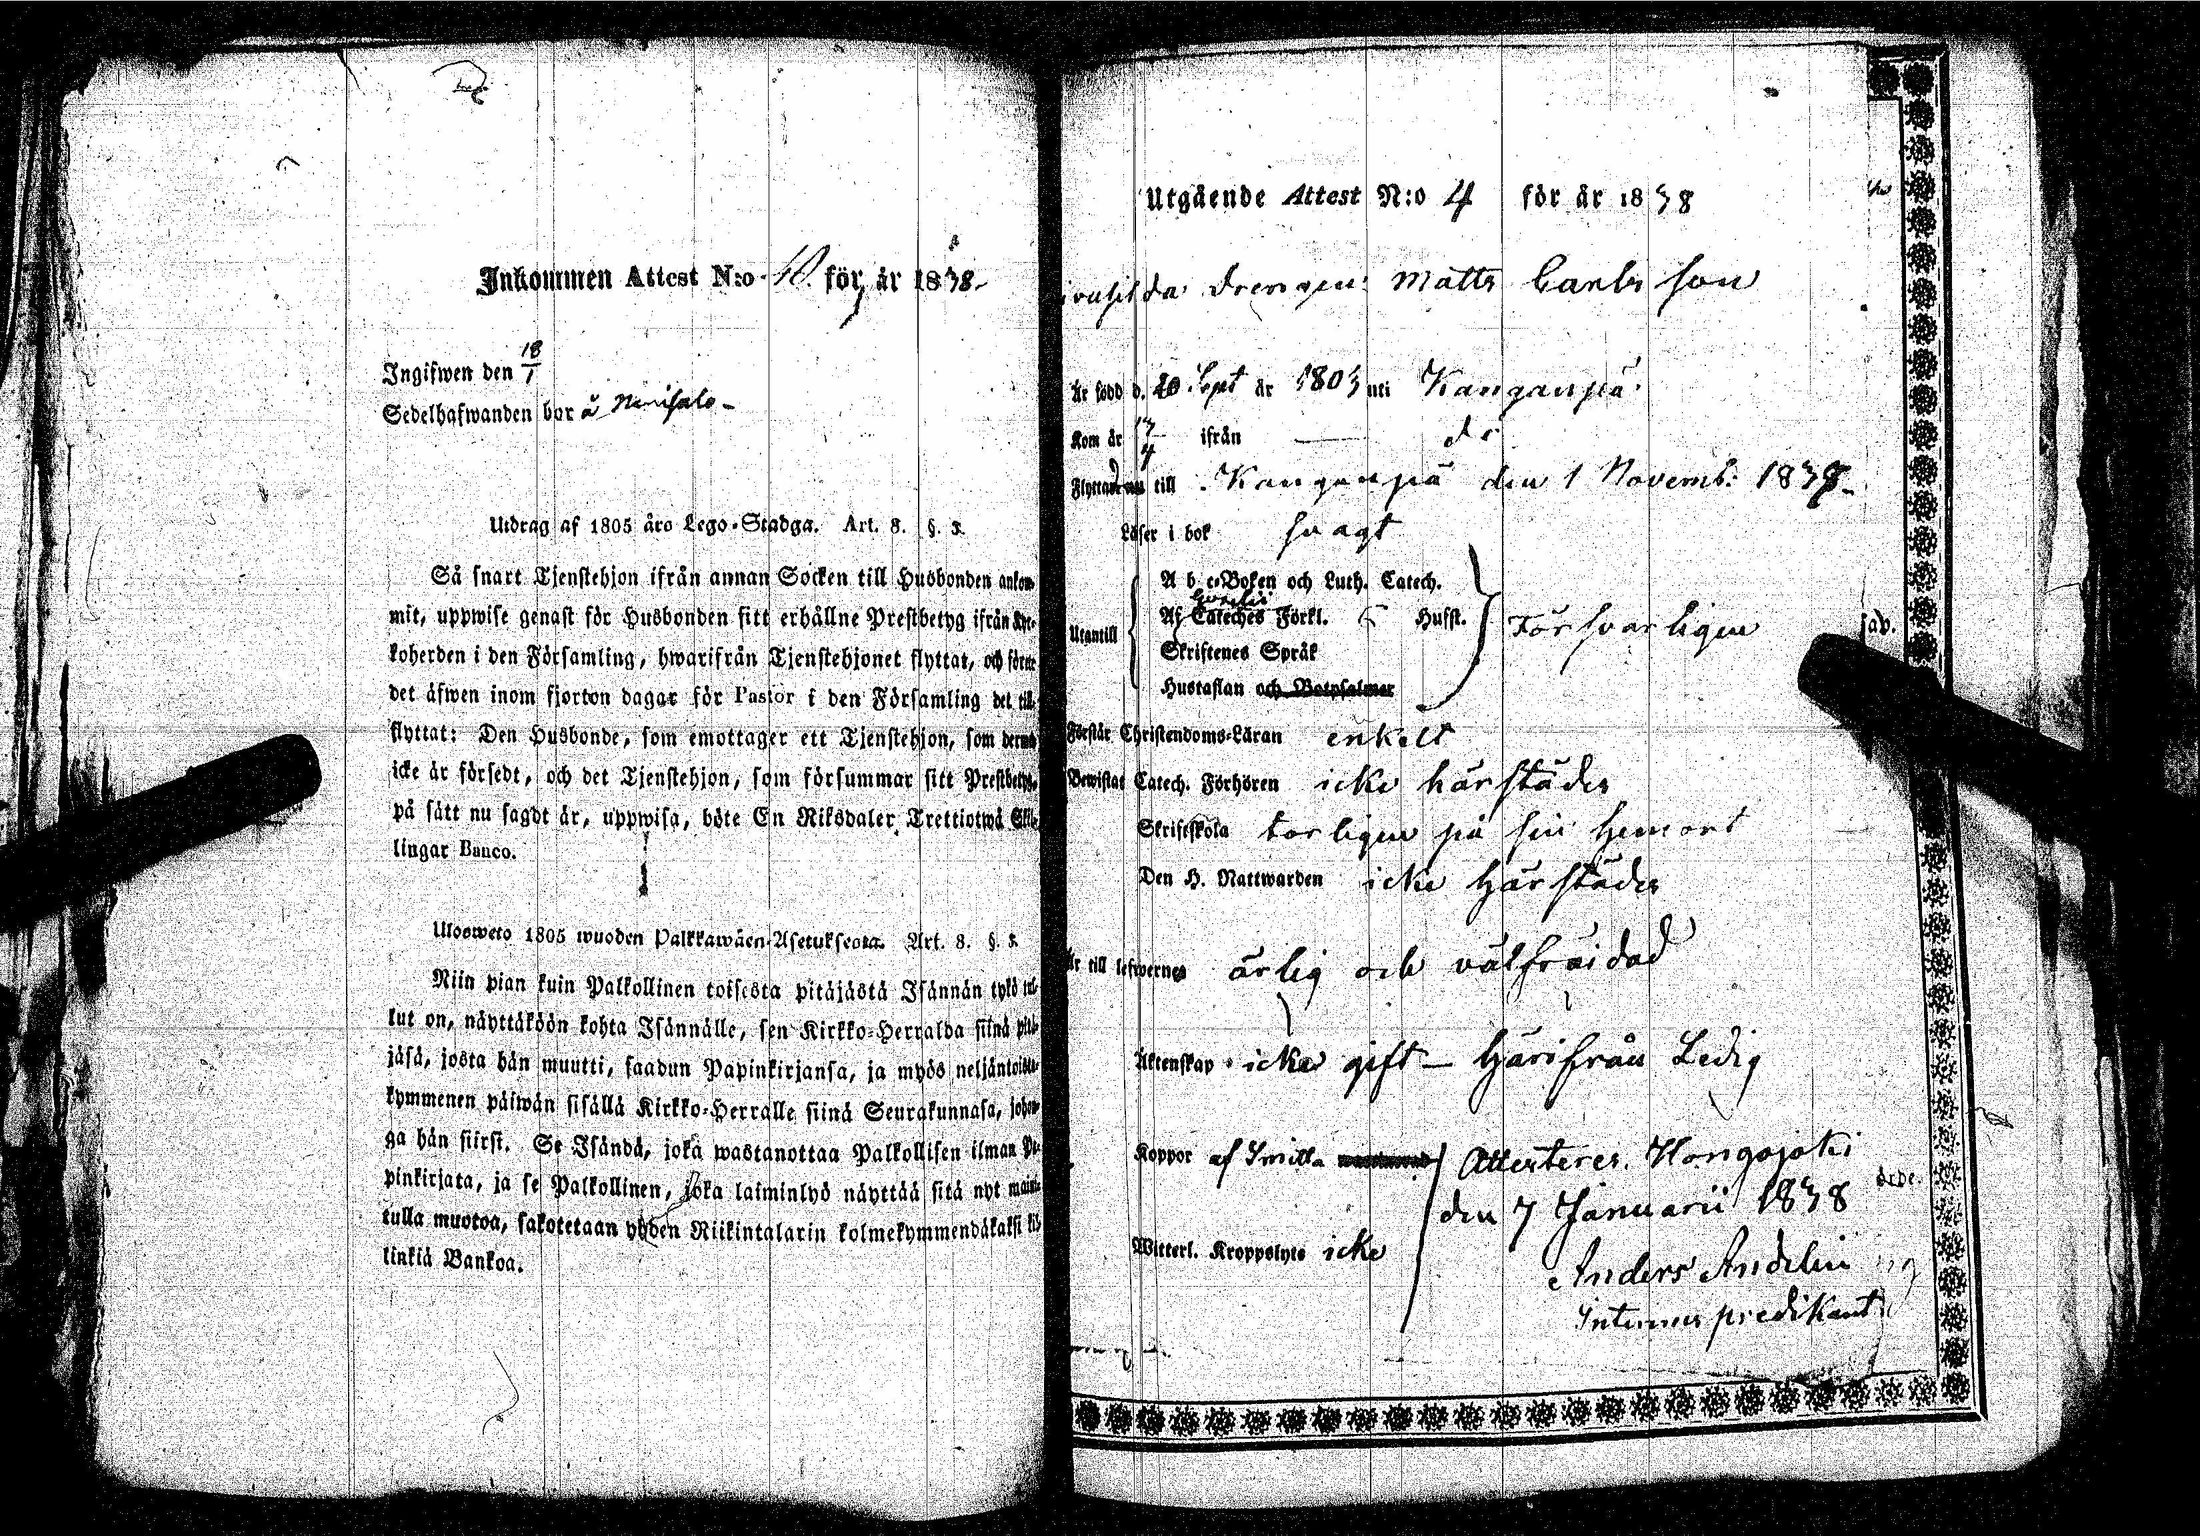 Inkommen Attest N:o 10. för år 1838.
Ingifwen den 18/1
Sedelhafwanden bor å
Utdrag af 1805 års Lego-Stadga. Art. 8. §. 3.
Så snart Tjenstehjon ifrån annan Socken till Husbonden ankom-
mit, uppwise genast för Husbonden sitt erhållne Prestbetyg ifrån Kyr-
koherden i den Församling, hwarifrån Tjenstehjonet flyttat, och förete
det äfwen inom fjorton dagar för Pastor i den Församling det till-
flyttat: Den Husbonde, som emottager ett Tjenstehjon, som dermed
icke är försedt, och det Tjenstehjon, som försummar sitt Prestbetyg,
på sätt nu sagdt är, uppwisa, böte En Riksdaler Trettiotwå Skil-
lingar Banco.
Ulosweto 1805 wuoden Palkkawäen-Asetuksesta. Art. 8. §. 3.
Niin pian kuin Palkollinen toisesta pitäjästä Isännän tykö tul-
lut on, näyttäköön kohta Isännälle, sen Kirkko-Herralda siinä pitä-
jäsä, josta hän muutti, saadun Papinkirjansa, ja myös neljäntoista-
kymmenen päiwän sisällä Kirkko-Herralle siinä Seurakunnasa, johon-
ga hän siirsi. Se Isändä, joka wastanottaa Palkollisen ilman Pa-
pinkirjata, ja se Palkollinen, joka laiminlyö näyttää sitä nyt mainit-
tulla muotoa, sakotetaan yhden Riikintalarin kolmekymmendäkaksi kil-
linkiä Bankoa.
Utgående Attest N:o 4 för år 1838
Drengen Matts Carlsson
Är född d. 20 Sept år 1803 uti Kanganpä
Kom år 37/4 ifrån — do
Flyttade till Kanganpä den 1 Novemb: 1838
Läser i bok svagt
Utantill
A b c-Boken och Luth. Catech.
Af Cateches Förkl. Hufst.
Skriftenes Språk
Hustaflan och Botpsalmer
Försvarligen
Förstår Christendoms-Läran enkelt
Bewistat Catech. Förhören icke härstädes
Skriftskola torligen på sin hemort
Den H. Nattwarden icke härstädes
Är till lefwernes ärlig och välfräjdad
Äktenskap icke gift — härifrån Ledig
Koppor af Smitta
Witterl. Kroppslyte icke
Attesteres. Hongojoki
den 7 Januarii 1838
Anders Andelin
predikant